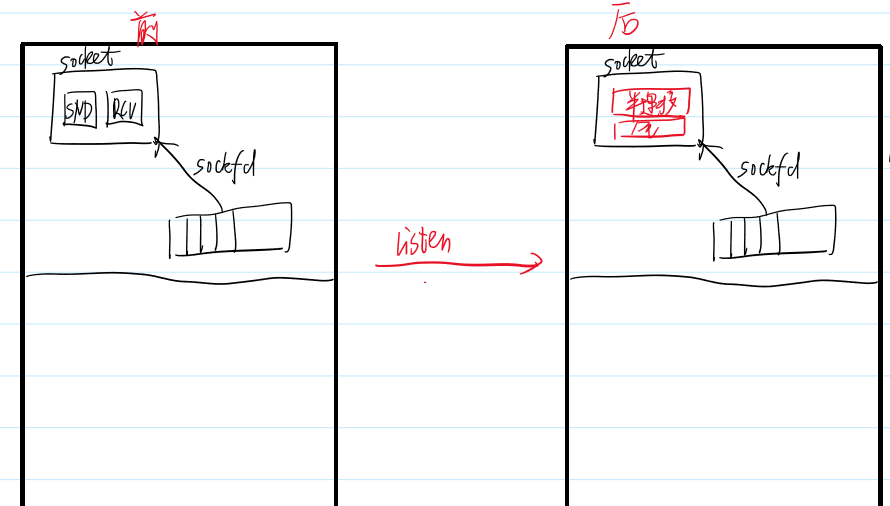 前
socket
SND RCV
sockfd
listen
后
socket
半连接
sockfd